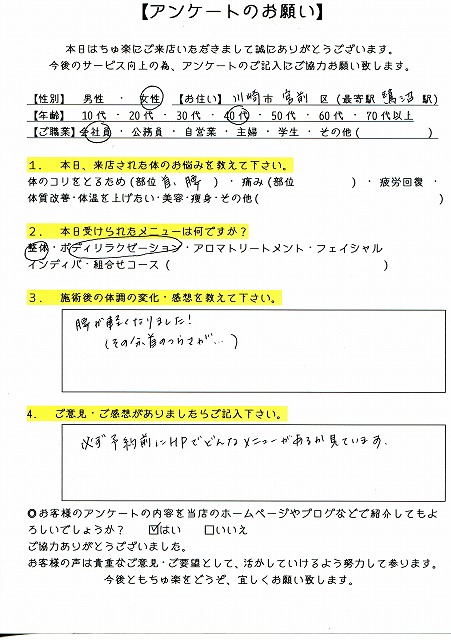 【アンケートのお願い】
本日はちゅ楽にご来店いただきまして誠にありがとうございます。
今後のサービス向上の為、アンケートのご記入にご協力お願い致します。
【性別】 男性 ・ 女性 【お住い】 川崎市 宮前 区 (最寄駅 鷺沼 駅)
【年齢】 10代 ・ 20代 ・ 30代 ・ 40代 ・ 50代 ・ 60代 ・ 70代以上
【ご職業】会社員 ・ 公務員 ・ 自営業 ・ 主婦 ・ 学生 ・ その他( )
1. 本日、来店された体のお悩みを教えて下さい。
体のコリをとるため(部位 首、脾 ) ・ 痛み(部位 ) ・ 疲労回復 ・
体質改善・体温を上げたい・美容・痩身・その他( )
2. 本日受けられたメニューは何ですか?
整体・ボディリラクゼーション・アロマトリートメント・フェイシャル
インディバ・組合せコース ( )
3. 施術後の体調の変化・感想を教えて下さい。
脾が軽くなりました!
(その分、首のつらさが…)
4. ご意見・ご感想がありましたらご記入下さい。
必ず予約前にHPでどんなメニューがあるか見ています。
◎お客様のアンケートの内容を当店のホームページやブログなどで紹介してもよ
ろしいでしょうか? ☑はい □いいえ
ご協力ありがとうございました。
お客様の声は貴重なご意見・ご要望として、活かしていけるよう努力して参ります。
今後ともちゅ楽をどうぞ、宜しくお願い致します。